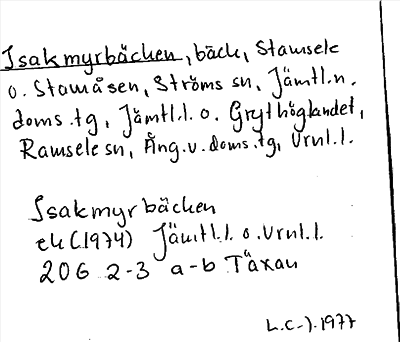 Isakmyrbäcken, bäck, Stamsele
o. Stamåsen, Ströms sn, Jämtl.n.
doms.tg, Jämtl.l. o. Grythöglandet,
Ramsele sn, Ång.v.doms.tg, Vrnl.l.
Isakmyrbäcken
ek (1974) Jämtl.l. o. Vrnl.l.
206 2-3 a-b Täxan
L.C-). 1977